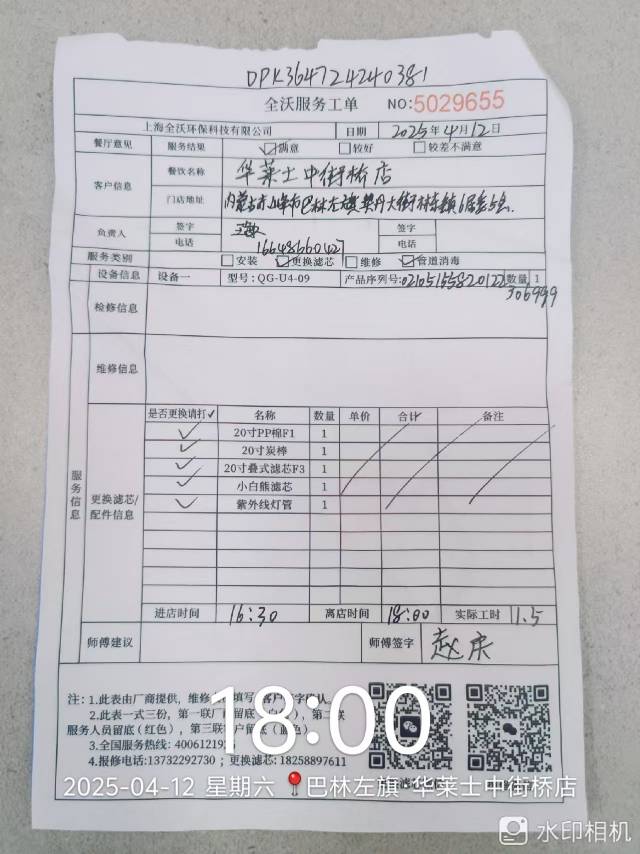 DPK364724240381
全沃服务工单 NO:5029655
上海全沃环保科技有限公司 日期 2025年4月12日
餐厅意见 服务结果 ☑满意 □较好 □较差不满意
客户信息 餐饮名称 华莱士中街桥店
门店地址 内蒙古赤峰市巴林左旗契丹大街林东镇
负责人 签字 签字
电话 16648660427 电话
服务类别 □安装 ☑更换滤芯 □维修 ☑管道消毒
设备信息 设备一 型号:QG-U4-09 产品序列号: 数量 1
306999
检修信息
维修信息
服务信息
更换滤芯/配件信息
是否更换请打✓ 名称 数量 单价 合计 备注
✓ 20寸PP棉F1 1
✓ 20寸炭棒 1
✓ 20寸叠式滤芯F3 1
✓ 小白熊滤芯 1
✓ 紫外线灯管 1
进店时间 16:30 离店时间 18:00 实际工时 1.5
师傅建议 师傅签字 赵庆
注:1.此表由厂商提供,维修 填写 客户 字确认
2.此表一式三份,第一联厂 留底 第二联
服务人员留底(红色),第三联 户留底(蓝色)
3.全国服务热线:40061219
4.报修电话:13732292730;更换滤芯:18258897611
18:00
2025-04-12 星期六 巴林左旗·华莱士中街桥店
水印相机